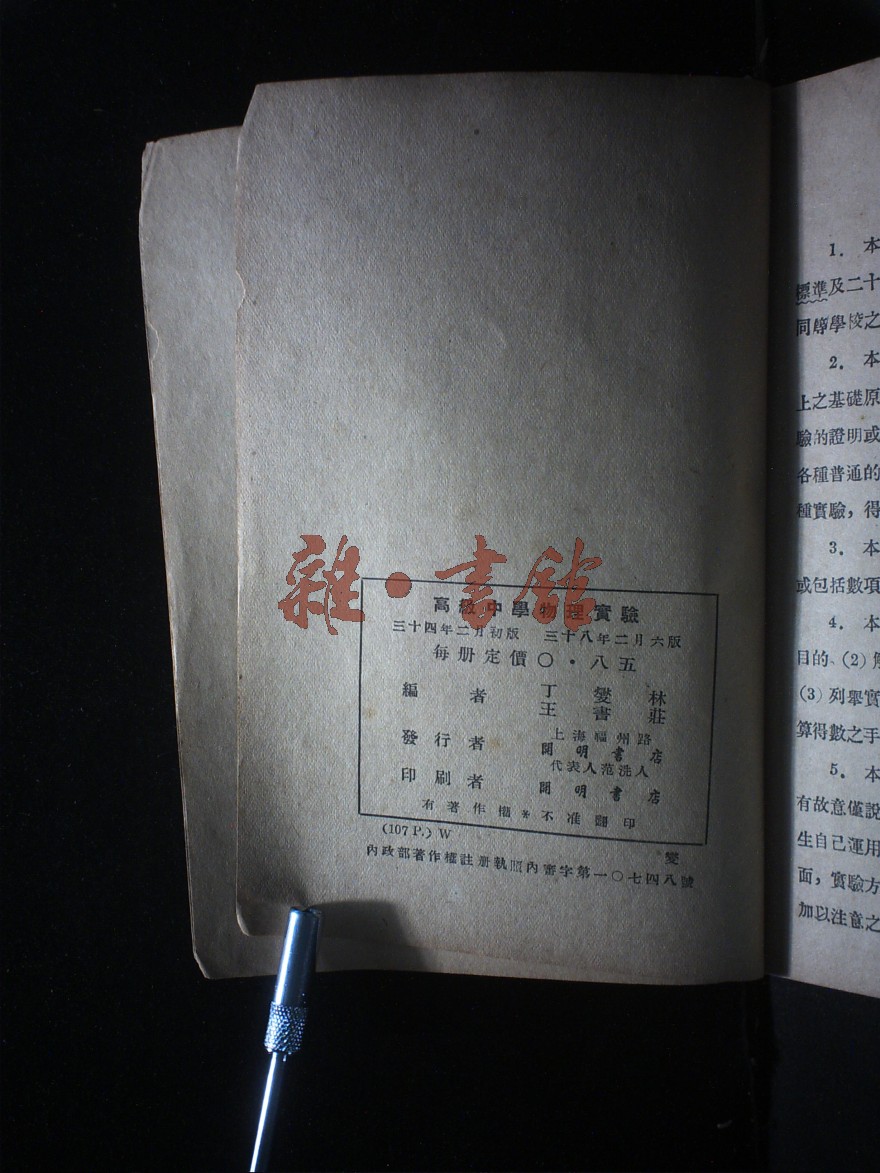 雜·書舘
高級中學物理實驗
三十四年二月初版 三十八年二月六版
每册定價〇·八五
編者 丁燮林
王書莊
發行者 上海福州路
開明書店
代表人范洗人
印刷者 開明書店
有著作權*不准翻印
(107 P.) W 燮
內政部著作權註册執照內審字第一〇七四八號
1. 本
標準及二十
同等學校之
2. 本
上之基礎原
驗的證明或
各種普通的
種實驗，得
3. 本
或包括數項
4. 本
目的、(2) 
(3) 列舉實
算得數之手
5. 本
有故意僅說
生自己運用
面，實驗方
加以注意之